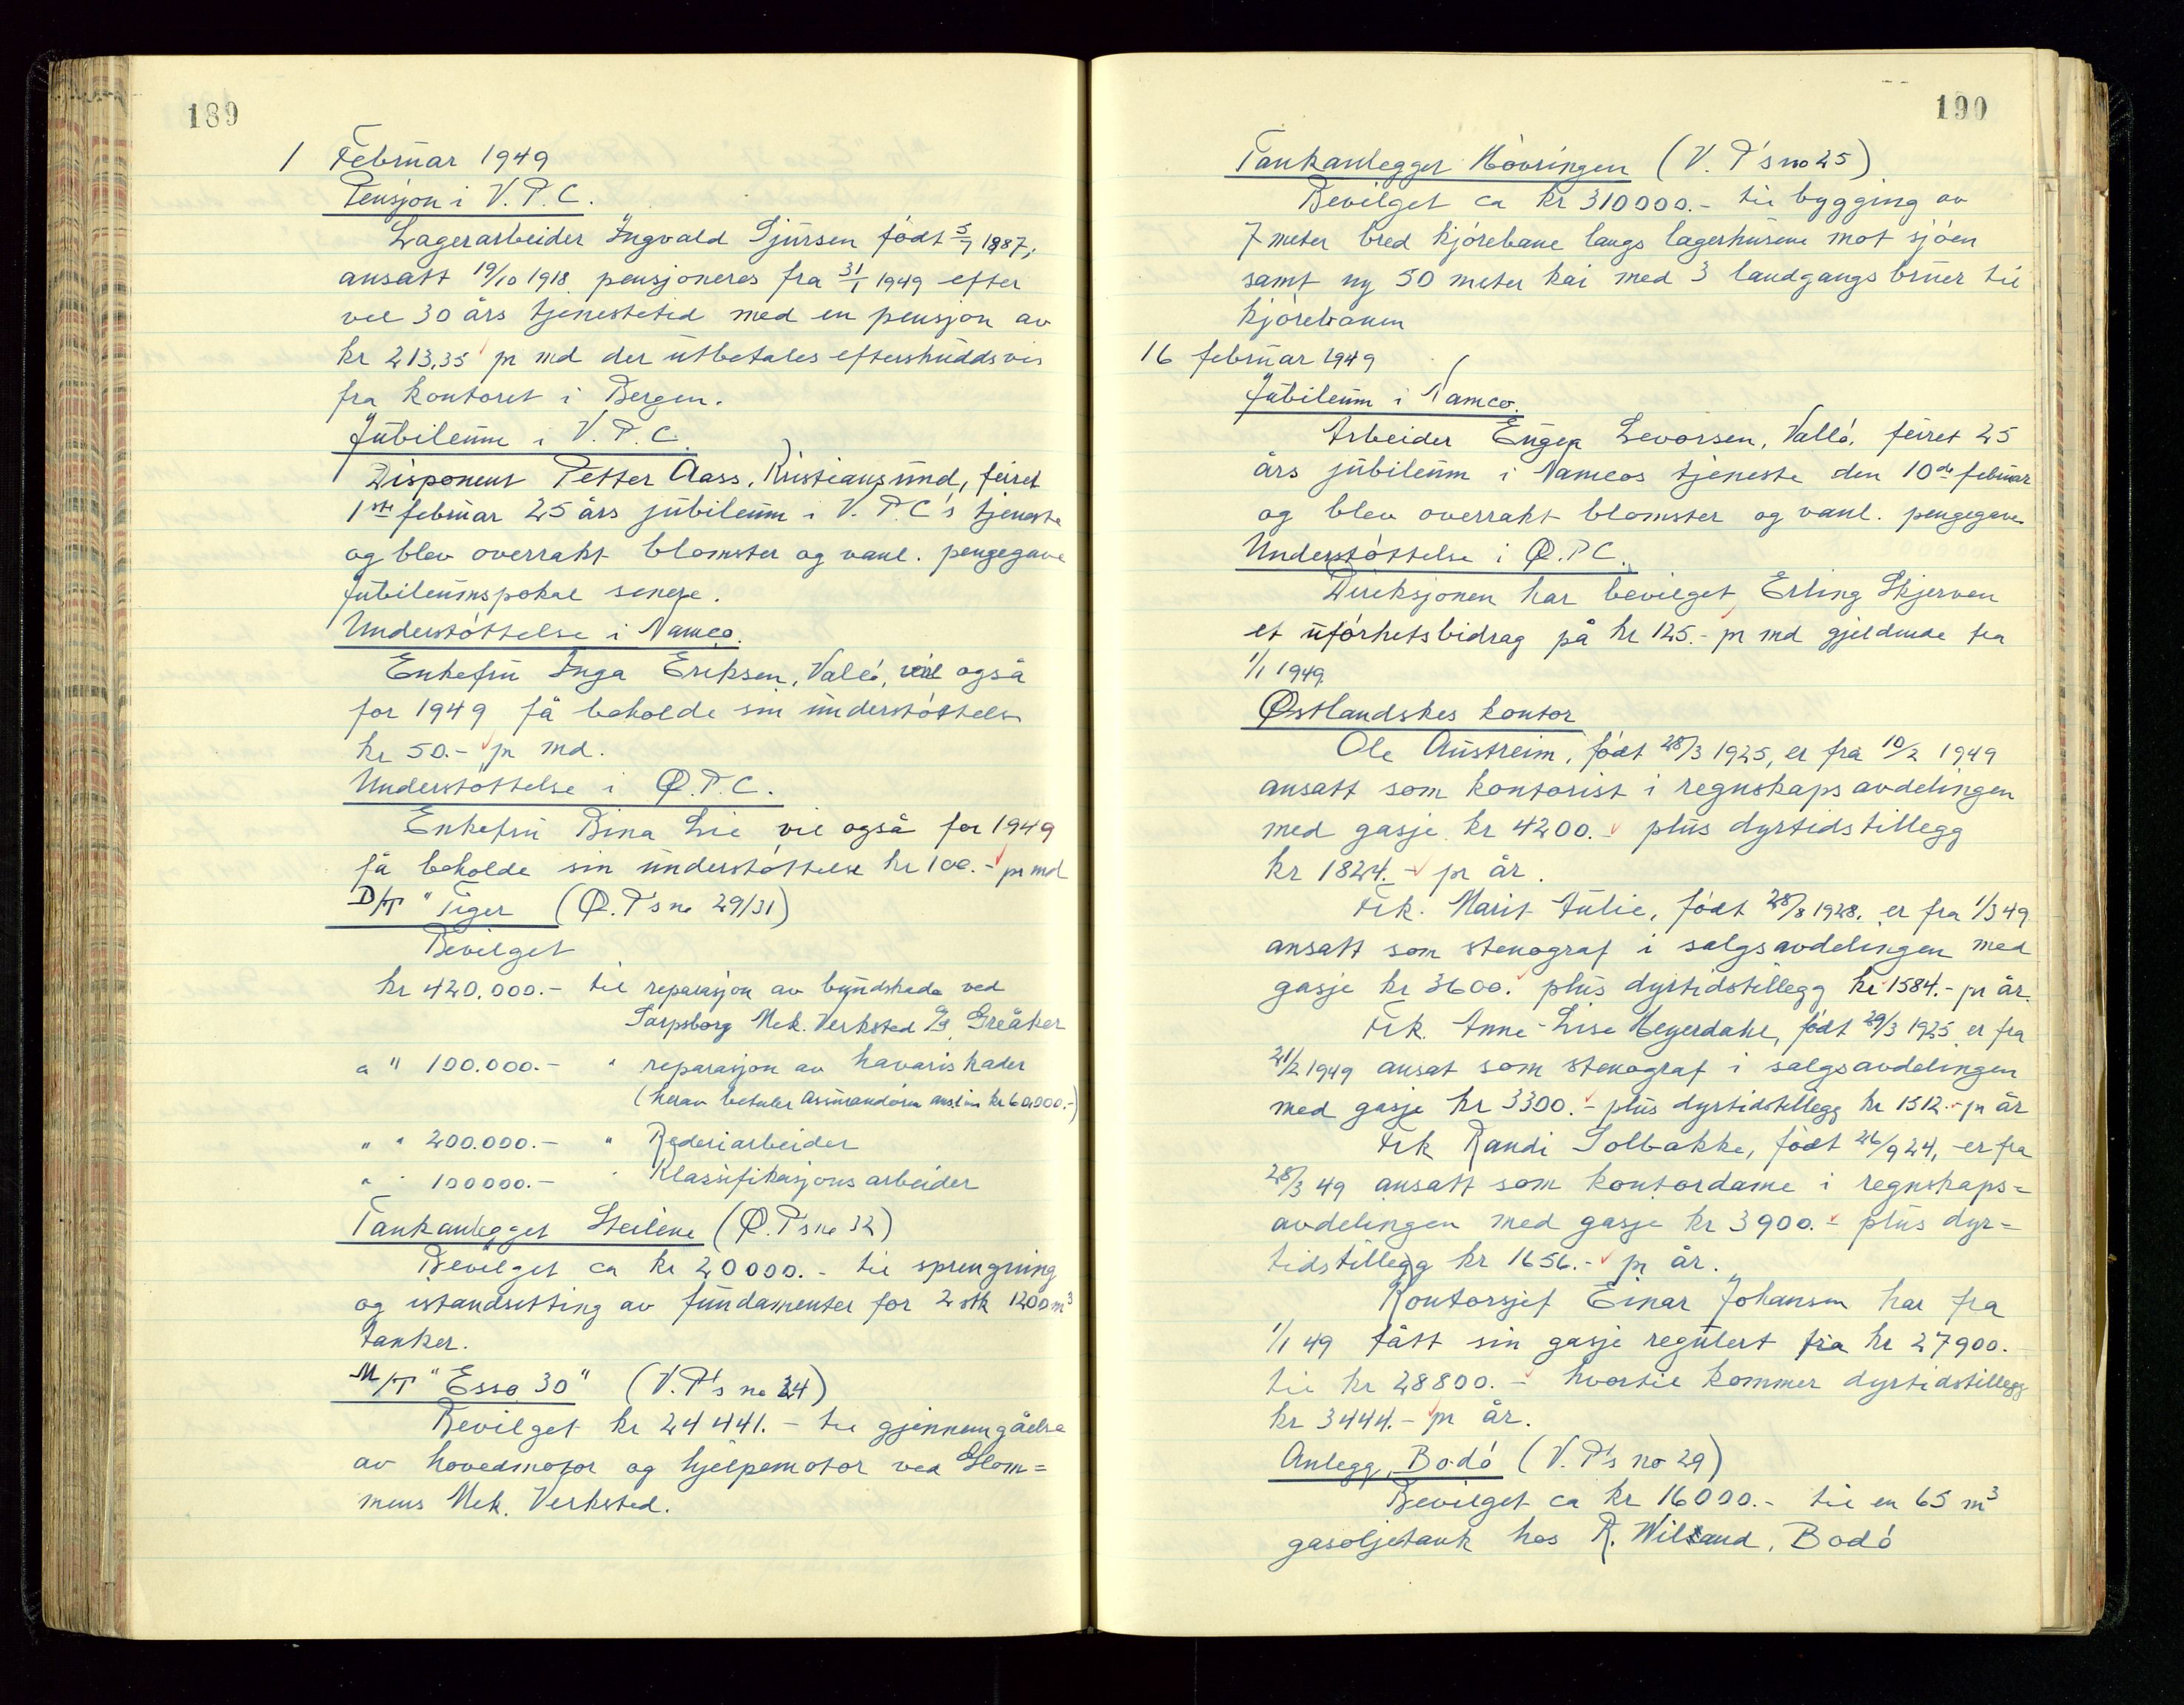 189
1 Februar 1949
Pensjon i V.P.C.
Lagerarbeider Ingvald Sjursen født 5/7 1887,
ansatt 19/10 1918 pensjoneres fra 31/1 1949 efter
vel 30 års tjenestetid med en pensjon av
kr 213,35 pr md der utbetales efterskuddsvis
fra kontoret i Bergen.
Jubileum i V.P.C.
Disponent Petter Aass, Kristiansund, feiret
1ste februar 25 års jubileum i V.P.C's tjeneste
og blev overrakt blomster og vanl. pengegave
Jubileumspokal senere.
Understøttelse i Namco.
Enkefru Inga Eriksen, Vallø, vil også
for 1949 få beholde sin understøttelse
kr 50.- pr md.
Understøttelse i Ø.P.C.
Enkefru Bina Lie vil også for 1949
få beholde sin understøttelse kr 100.- pr md
D/T "Tiger (Ø.P's no 29/31)
Bevilget
kr 420.000.- til reparasjon av bundskade ved
Sarpsborg Mek. Verksted Greåker
a " 100.000.- " reparasjon av havariskader
(herav betaler Assurandøren kr 60.000.-)
" " 200.000.- " Rederiarbeider
" " 100000.- " Klassifikasjonsarbeider
Tankanlegget Steilene (Ø.P's no 32)
Bevilget ca kr 20000.- til sprengning
og istandsetting av fundamenter for 2 stk 1200 m³
tanker.
M/T "Esso 30" (V.P's no 24)
Bevilget kr 24441.- til gjennemgåelse
av hovedmotor og hjelpemotor ved Glom=
mens Mek. Verksted.
190
Tankanlegget Høvringen (V.P's no 25)
Bevilget ca kr 310000.- til bygging av
7 meter bred kjørebane langs lagerhusene mot sjøen
samt ny 50 meter kai med 3 landgangsbruer til
kjørebanen
16 februar 1949
Jubileum i Namco.
Arbeider Levorsen, Vallø, feiret 25
års jubileum i Namcos tjeneste den 10de februar
og blev overrakt blomster og vanl. pengegave.
Understøttelse i Ø.P.C.
Direksjonen har bevilget Erling Skjerven
et uførhetsbidrag på kr 125.- pr md gjeldende fra
1/1 1949
Østlandskes kontor
Ole Austreim, født 28/3 1925, er fra 10/2 1949
ansatt som kontorist i regnskapsavdelingen
med gasje kr 4200.- plus dyrtidstillegg
kr 1824.- pr år.
Frk. Marit Julie, født 28/8 1928, er fra 1/3 49
ansatt som stenograf i salgsavdelingen med
gasje kr 3600. plus dyrtidstillegg kr 1584.- pr år.
Frk. Anne-Lise Heyerdahl, født 29/3 1925 er fra
21/2 1949 ansat som stenograf i salgsavdelingen
med gasje kr 3300.- plus dyrtidstillegg kr 1512.- pr år
Frk Randi Solbakke, født 26/9 24, er fra
28/3 49 ansatt som kontordame i regnskaps=
avdelingen med gasje kr 3900.- plus dyr=
tidstillegg kr 1656.- pr år.
Kontorsjef Einar Johansen har fra
1/1 49 fått sin gasje regulert fra kr 27900.
til kr 28800.- hvortil kommer dyrtidstillegg
kr 3444.- pr år.
Anlegg, Bodø (V.P's no 29)
Bevilget ca kr 16000.- til en 65 m³
gasoljetank hos R. Bodø